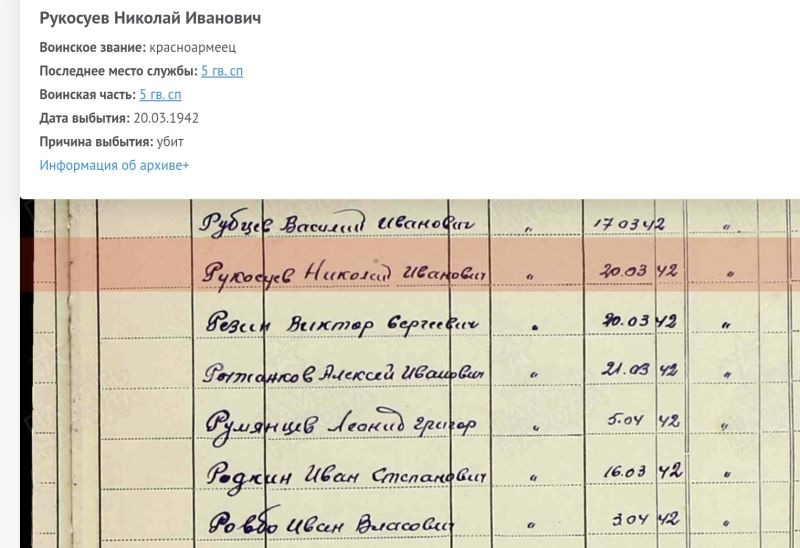 Рукосуев Николай Иванович
Воинское звание: красноармеец
Последнее место службы: 5 гв. сп
Воинская часть: 5 гв. сп
Дата выбытия: 20.03.1942
Причина выбытия: убит
Информация об архиве+
Рубцев Василий Иванович " 17 03 42 "
Рукосуев Николай Иванович " 20.03 42 "
Резин Виктор Сергеевич " 20.03 42 "
Алексей Иванович " 21.03 42 "
Румянцев Леонид Григор " 5.04 42 "
Родкин Иван Степанович " 16.03 42 "
Ровбо Иван Власович " 3.04 42 "